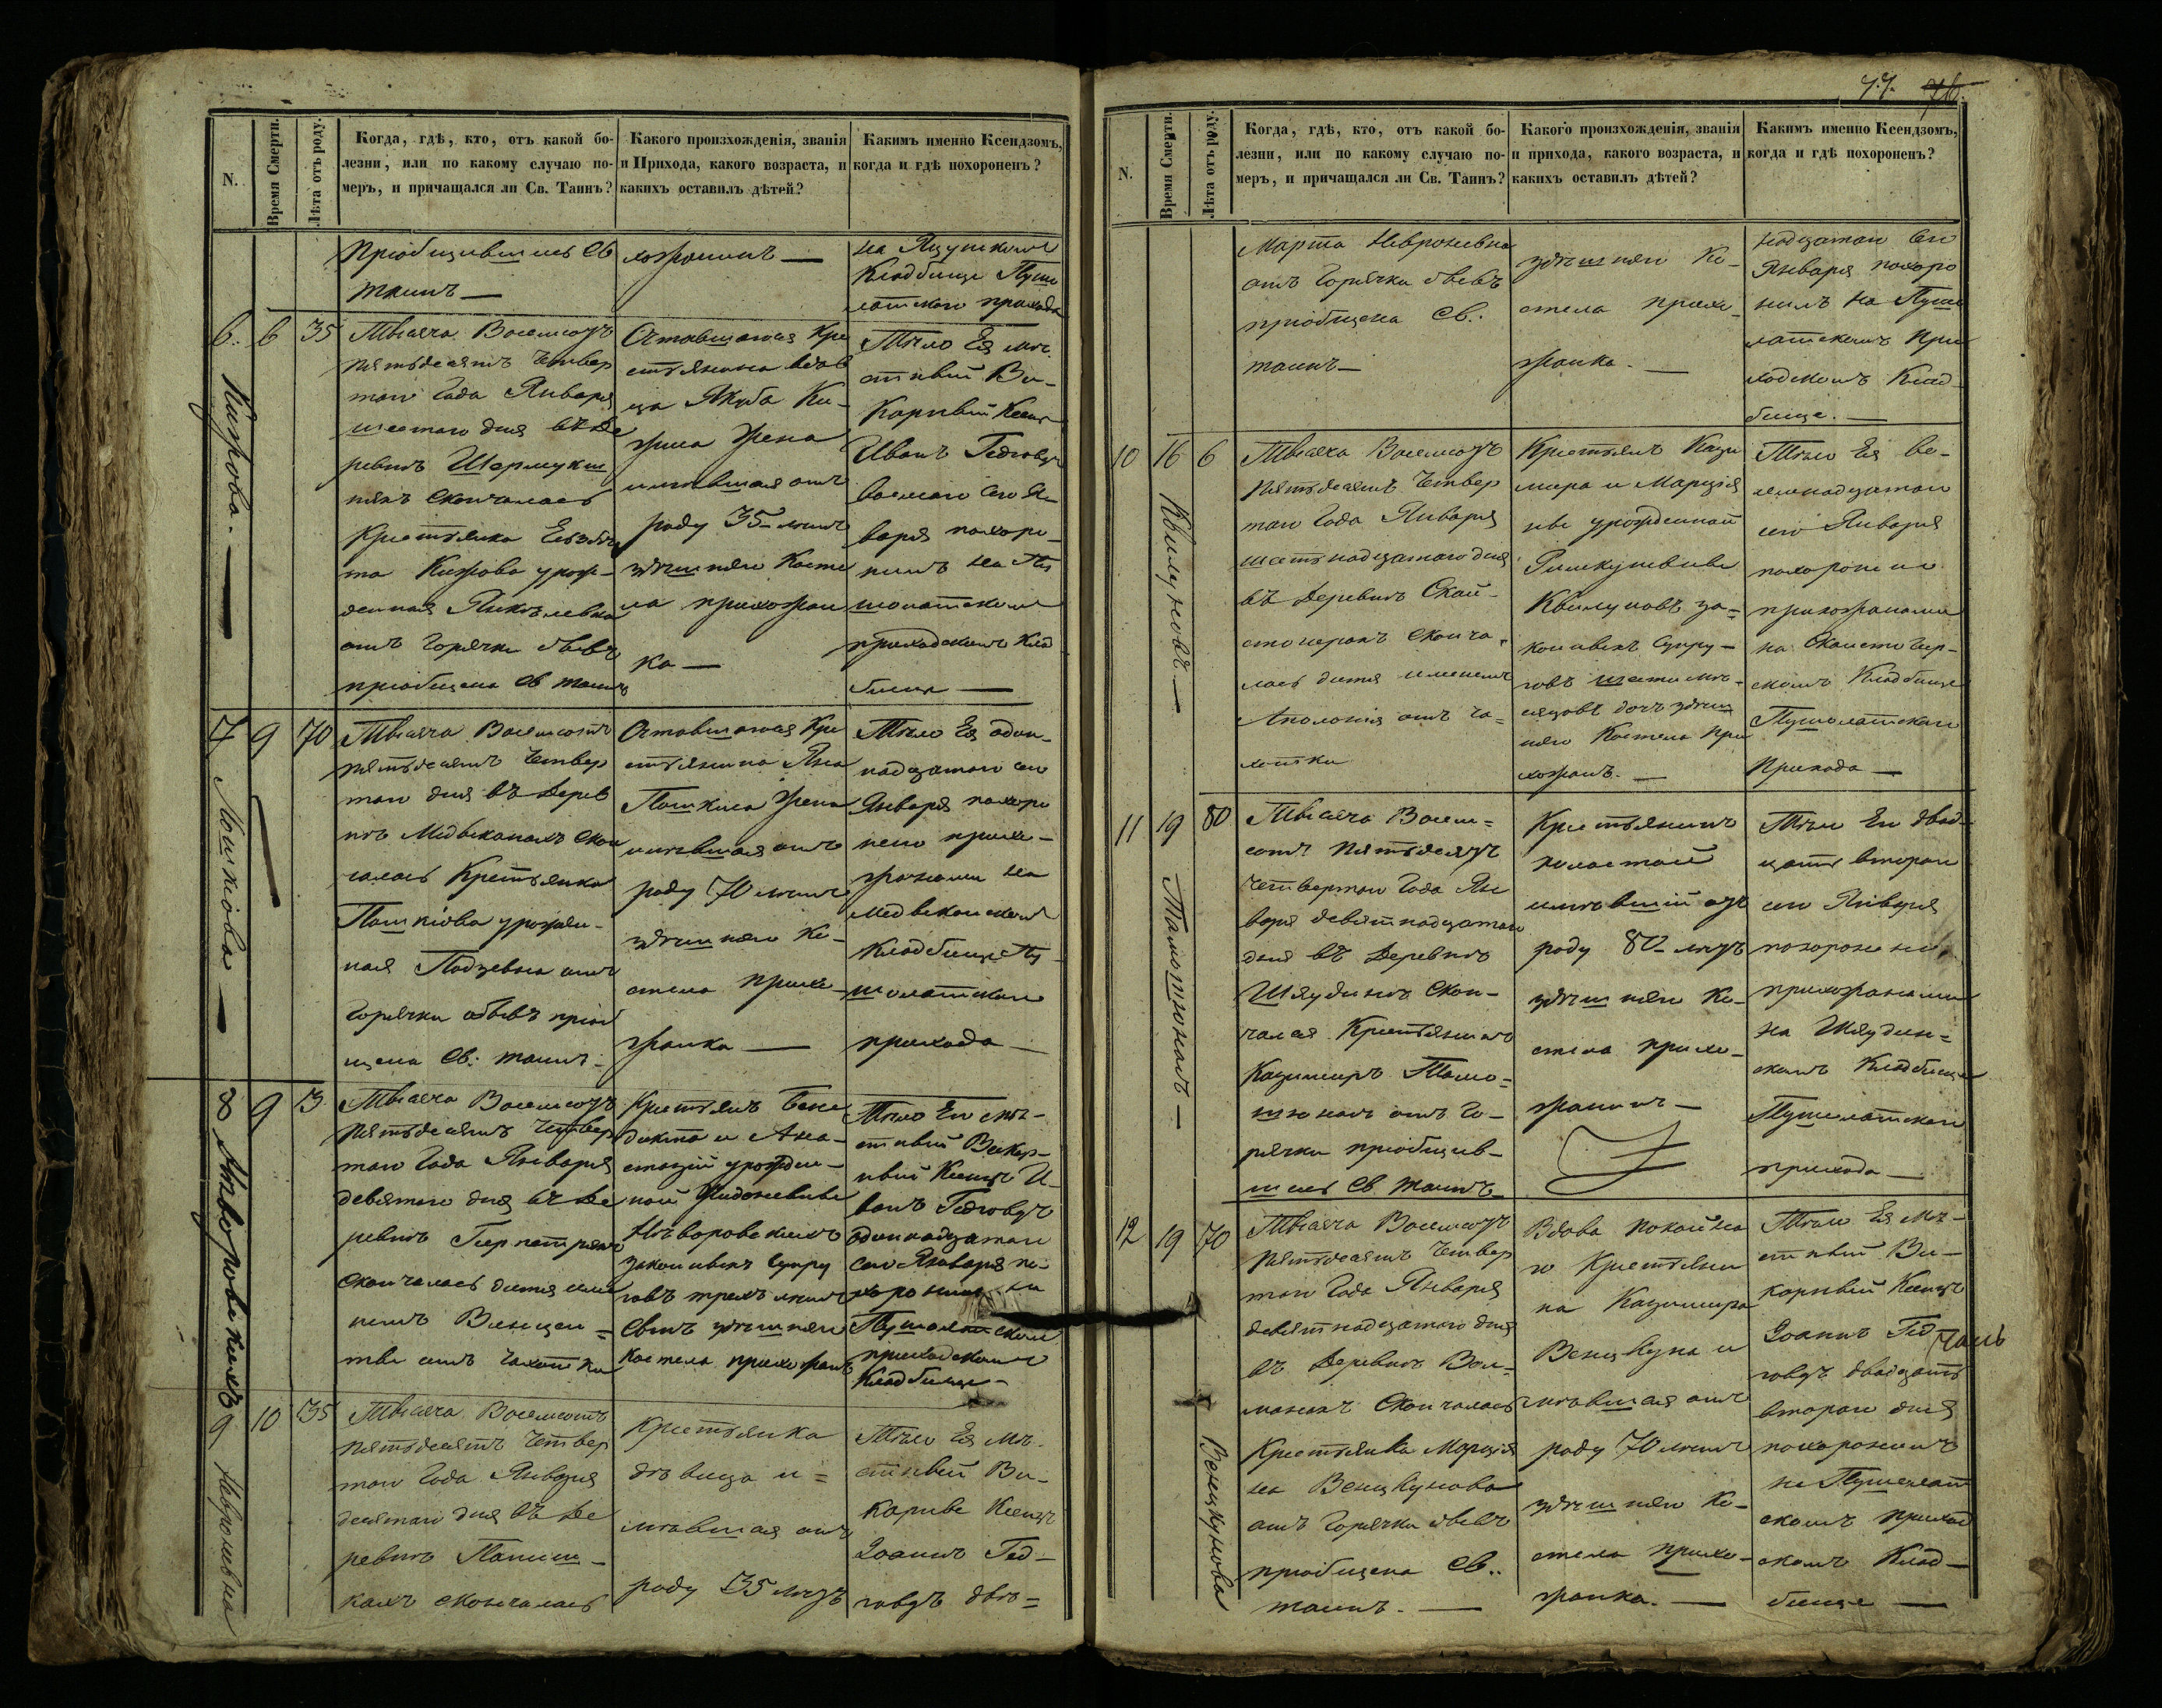 N.
Время Смерти.
Лѣта отъ роду.
Когда, гдѣ, кто, отъ какой бо-
лезни, или по какому случаю по-
меръ, и причащался ли Св. Таинъ?
Какого произхожденія, званія
и Прихода, какого возраста, и
какихъ оставилъ дѣтей?
Какимъ именно Ксендзомъ,
когда и гдѣ похороненъ?
Пріобщившись Св
таинъ —
хожанинъ —
на
Кладбище Пуш
латского прихода
6. 6 35
Кижова. —
Тысяча Восемсотъ
пятьдесятъ Четвер
таго Года Января
шестаго дня въ де
ревнѣ
скончалась
Крестьянка Елзбѣ
та Кижова урож-
денная
отъ горячки бывъ
пріобщена Св таинъ
Оставшаяся Кре
стьянина вдов
ца Якуба Ки-
жиса жена
имѣвшая отъ
роду 35 лѣтъ
здѣшняго Косте
ла прихожан
ка —
Тѣло Ея мѣ
стный Ви-
карный Ксендзъ
Иванъ Гедговдъ
восмаго сего Ян
варя похоро-
нилъ на Пу
шолатскомъ
приходскомъ клад
бище —
7 9 70
Пошкіова —
Тысяча Восемсотъ
пятьдесятъ Четвер
таго дня въ Дерев
нѣ Медвеканахъ скон
чалась Крестьянка
Пошкіова урожден-
ная Подзевна отъ
горячки бывъ пріоб
щена Св: таинъ.
Оставшаяся Кре
стьянина Яна
Пошкиса жена
имѣвшая отъ
роду 70 лѣтъ
здѣшняго Ко-
стела прихо-
жанка —
Тѣло Ея один-
надцатаго сего
Января похоро
нено прихо-
жанами на
Медвеканскомъ
Кладбище Пу
шолатскаго
прихода —
8 9 3
Нѣворовскихъ
Тысяча Восемсотъ
Пятьдесятъ Четвер
таго Года Января
девятаго дня въ де
ревнѣ
скончалось дитя име
немъ Винцен-
тые отъ чахотки
Крестьянъ Бене
дикта и Ана-
стазіи урожден-
ной
Нѣворовскихъ
законныхъ супру
говъ трехъ лѣтъ
сынъ здѣшняго
Костела прихожанъ
Тѣло Его мѣ-
стный Викар-
ный Ксендзъ И-
ванъ Гедговдъ
одиннадцатаго
сего Января по-
хоронилъ на
Пушолатскомъ
приходскомъ
Кладбище —
9 10 35
Невроневна
Тысяча Восемсотъ
пятьдесятъ Четвер
таго Года Января
десятаго дня въ Де
ревнѣ Паниш-
кахъ скончалась
Крестьянка
дѣвица и-
мѣвшая отъ
роду 35 лѣтъ
Тѣло Ея мѣ-
стный Ви-
карные Ксендзъ
Іоаннъ Гед-
говдъ двѣ-
77. 76.
N.
Время Смерти.
Лѣта отъ роду.
Когда, гдѣ, кто, отъ какой бо-
лезни, или по какому случаю по-
меръ, и причащался ли Св. Таинъ?
Какого произхожденія, званія
и прихода, какого возраста, и
какихъ оставилъ дѣтей?
Какимъ именно Ксендзомъ,
когда и гдѣ похороненъ?
Марта Невроневна
отъ Горячки бывъ
пріобщена Св.
таинъ —
здѣшняго Ко-
стела прихо-
жанка. —
надцатаго сего
Января похоро
нилъ на Пушо
латскомъ При
ходскомъ Клад-
бище. —
10 16 6
Квилуновъ —
Тысяча Восемсотъ
Пятьдесятъ Четвер
таго Года Января
шестьнадцатаго дня
въ Деревнѣ Скай-
скончалась
дитя именемъ
Аполонія отъ ча-
хотки
Крестьянъ Кази
мира и Марціа
ны урожденной
Квилуновъ за-
конныхъ супру-
говъ шести мѣ-
сяцовъ дочь здѣш
няго Костела При
хожанъ. —
Тѣло Ея во-
семнадцатаго
сего Января
похоронено
прихожанами
на
скомъ Кладбище
Пушолатскаго
Прихода —
11 19 80
Тамошюнасъ —
Тысяча Восем-
сотъ пятьдесятъ
Четвертаго Года Ян
варя девятнадцатаго
дня въ Деревнѣ
Шяудинѣ Скон-
чался Крестьянинъ
Казимиръ Тамо-
шюнасъ отъ го-
рячки пріобщив-
шись Св. таинъ
Крестьянинъ
холостой
имѣвшій отъ
роду 80 лѣтъ
здѣшняго Ко-
стела прихо-
жанинъ —
Тѣло Его двад-
цать втораго
сего Января
похоронено
прихожанами
на Шяудин-
скомъ Кладбище
Пушолатскаго
прихода —
12 19 70
Венцкунова
Тысяча Восемсотъ
Пятьдесятъ Четвер
таго Года Января
девятнадцатаго дня
въ Деревнѣ Вои-
Скончалась
Крестьянка Марціа
на Венцкунова
отъ Горячки бывъ
пріобщена Св..
таинъ. —
Вдова покойна
го Крестьяни
на Казимира
Венцкуна и
мѣвшая отъ
роду 70 лѣтъ
здѣшняго Ко-
стела прихо-
жанка. —
Тѣло Ея мѣ-
стный Ви-
карный Ксендзъ
Іоаннъ Гед
говдъ двадцать
втораго дня
похоронилъ
на Пушолат
скомъ приход
скомъ Клад-
бище —